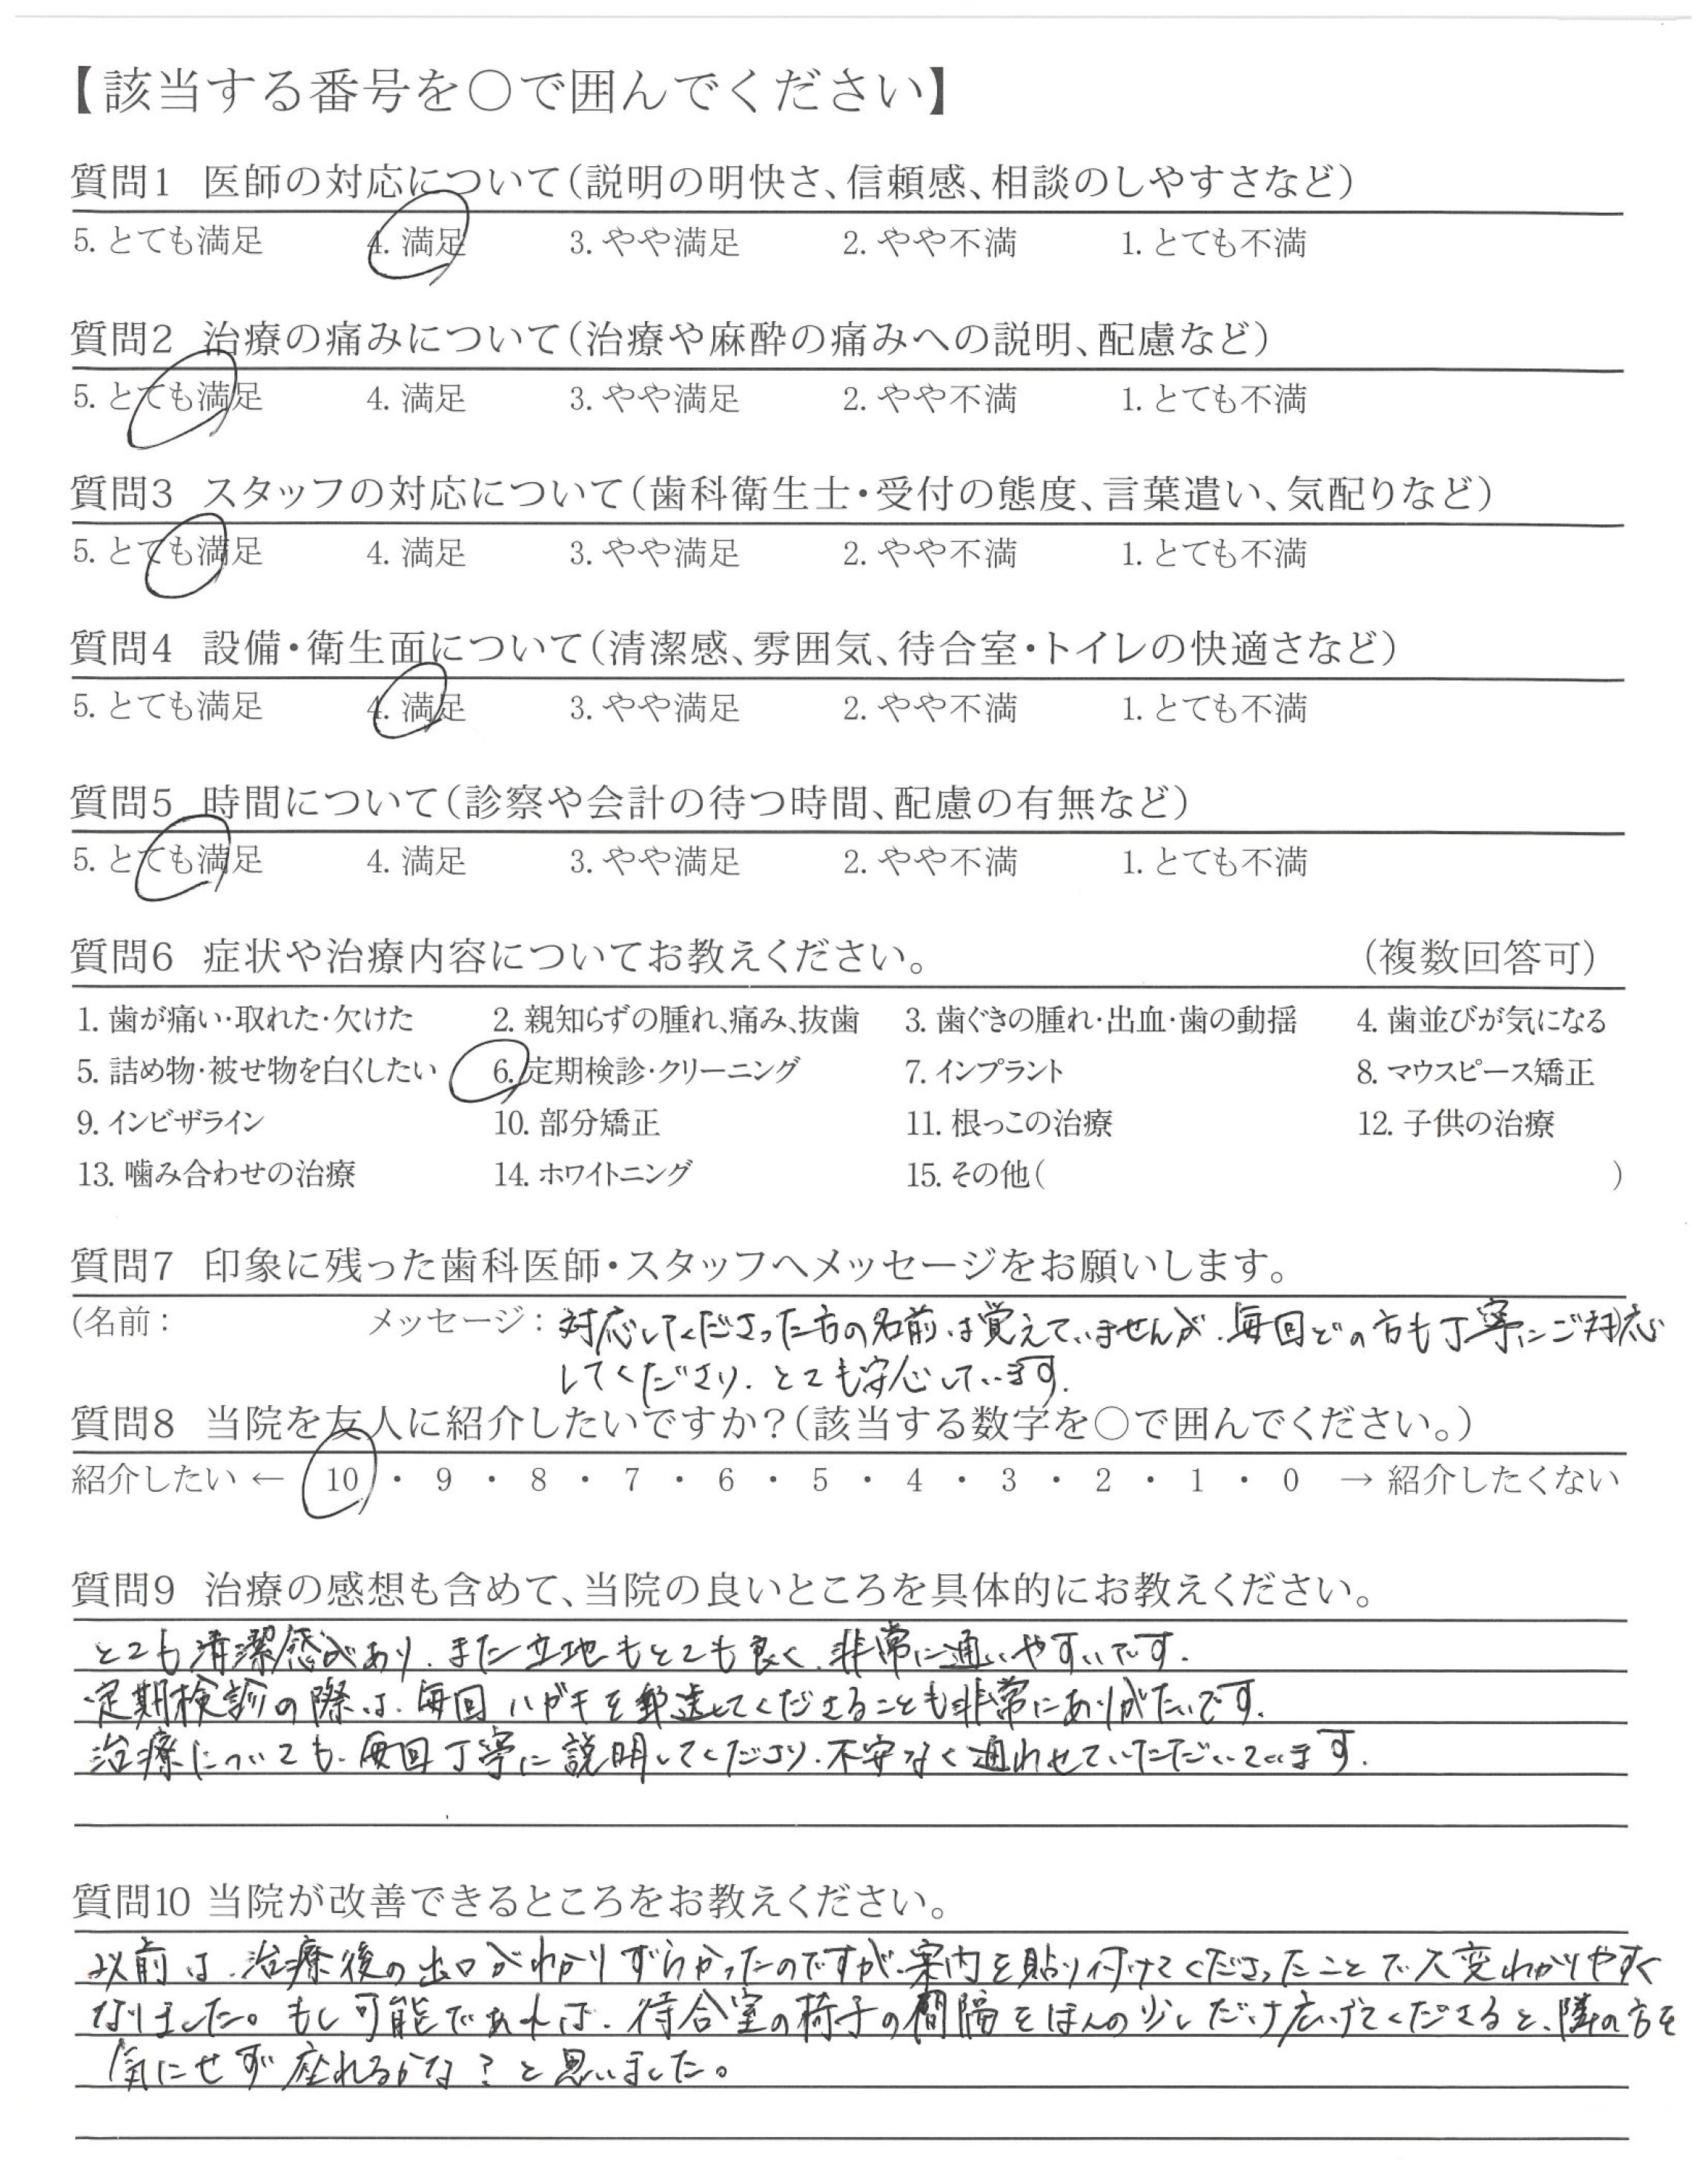 【該当する番号を○で囲んでください】
質問1 医師の対応について(説明の明快さ、信頼感、相談のしやすさなど)
5. とても満足 4. 満足 3. やや満足 2. やや不満 1. とても不満
質問2 治療の痛みについて(治療や麻酔の痛みへの説明、配慮など)
5. とても満足 4. 満足 3. やや満足 2. やや不満 1. とても不満
質問3 スタッフの対応について(歯科衛生士・受付の態度、言葉遣い、気配りなど)
5. とても満足 4. 満足 3. やや満足 2. やや不満 1. とても不満
質問4 設備・衛生面について(清潔感、雰囲気、待合室・トイレの快適さなど)
5. とても満足 4. 満足 3. やや満足 2. やや不満 1. とても不満
質問5 時間について(診察や会計の待つ時間、配慮の有無など)
5. とても満足 4. 満足 3. やや満足 2. やや不満 1. とても不満
質問6 症状や治療内容についてお教えください。 (複数回答可)
1. 歯が痛い・取れた・欠けた 2. 親知らずの腫れ、痛み、抜歯 3. 歯ぐきの腫れ・出血・歯の動揺 4. 歯並びが気になる
5. 詰め物・被せ物を白くしたい 6. 定期検診・クリーニング 7. インプラント 8. マウスピース矯正
9. インビザライン 10. 部分矯正 11. 根っこの治療 12. 子供の治療
13. 噛み合わせの治療 14. ホワイトニング 15. その他( )
質問7 印象に残った歯科医師・スタッフへメッセージをお願いします。
(名前: メッセージ: 対応してくださった方の名前は覚えていませんが、毎回どの方も丁寧にご対応
してくださり、とても安心しています。
質問8 当院を友人に紹介したいですか?(該当する数字を○で囲んでください。)
紹介したい ← 10 ・ 9 ・ 8 ・ 7 ・ 6 ・ 5 ・ 4 ・ 3 ・ 2 ・ 1 ・ 0 → 紹介したくない
質問9 治療の感想も含めて、当院の良いところを具体的にお教えください。
とても清潔感があり、また立地もとても良く、非常に通いやすいです。
定期検診の際は、毎回ハガキを郵送してくださることも非常にありがたいです。
治療についても、毎回丁寧に説明してくださり、不安なく通わせていただいています。
質問10 当院が改善できるところをお教えください。
以前は、治療後の出口がわかりずらかったのですが、案内を貼り付けてくださったことで大変わかりやすく
なりました。もし可能であれば、待合室の椅子の間隔をほんの少しだけ広げてくださると、隣の方を
気にせず座れるかな?と思いました。